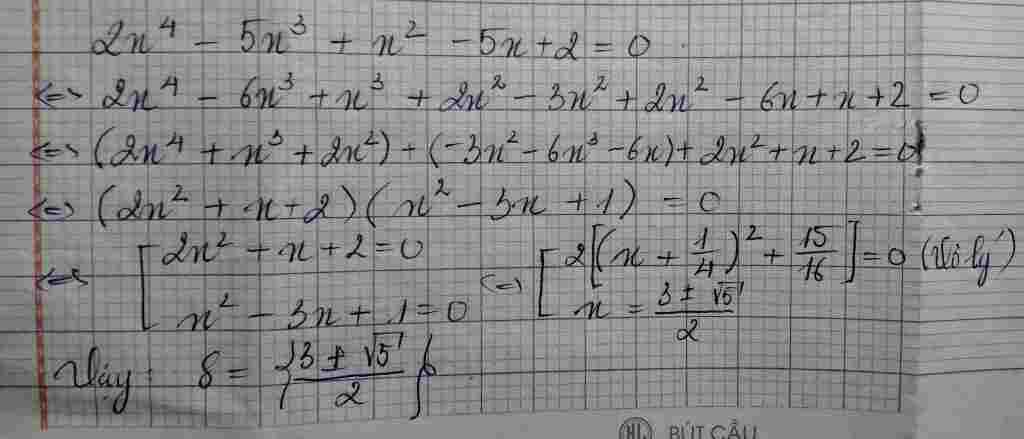 2x⁴ - 5x³ + x² - 5x + 2 = 0
<=> 2x⁴ - 6x³ + x³ + 2x² - 3x² + 2x² - 6x + x + 2 = 0
<=> (2x⁴ + x³ + 2x²) + (-3x² - 6x³ - 6x) + 2x² + x + 2 = 0
<=> (2x² + x + 2)(x² - 3x + 1) = 0
<=> [2x² + x + 2 = 0 <=> [2[(x + 1/4)² + 15/16] = 0 (Vô lý)
x² - 3x + 1 = 0 x = (3 ± √5)/2
Vậy: S = {(3 ± √5)/2}
HL BÚT CẦU